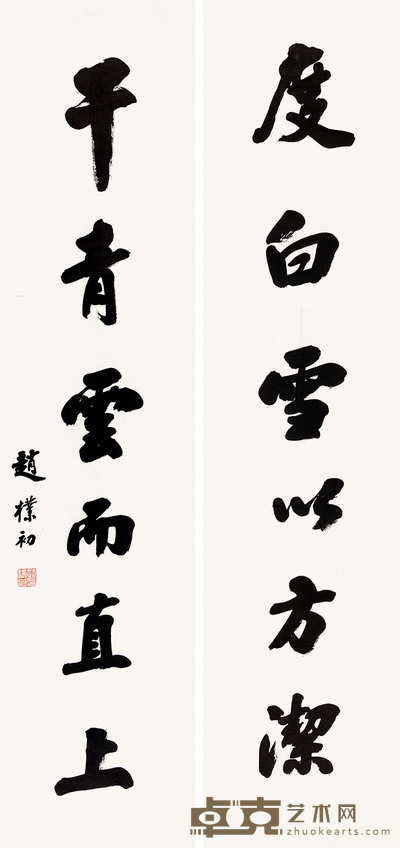 度白雪以方潔
干青雲而直上
趙樸初
卓克艺术网
zhuokearts.com